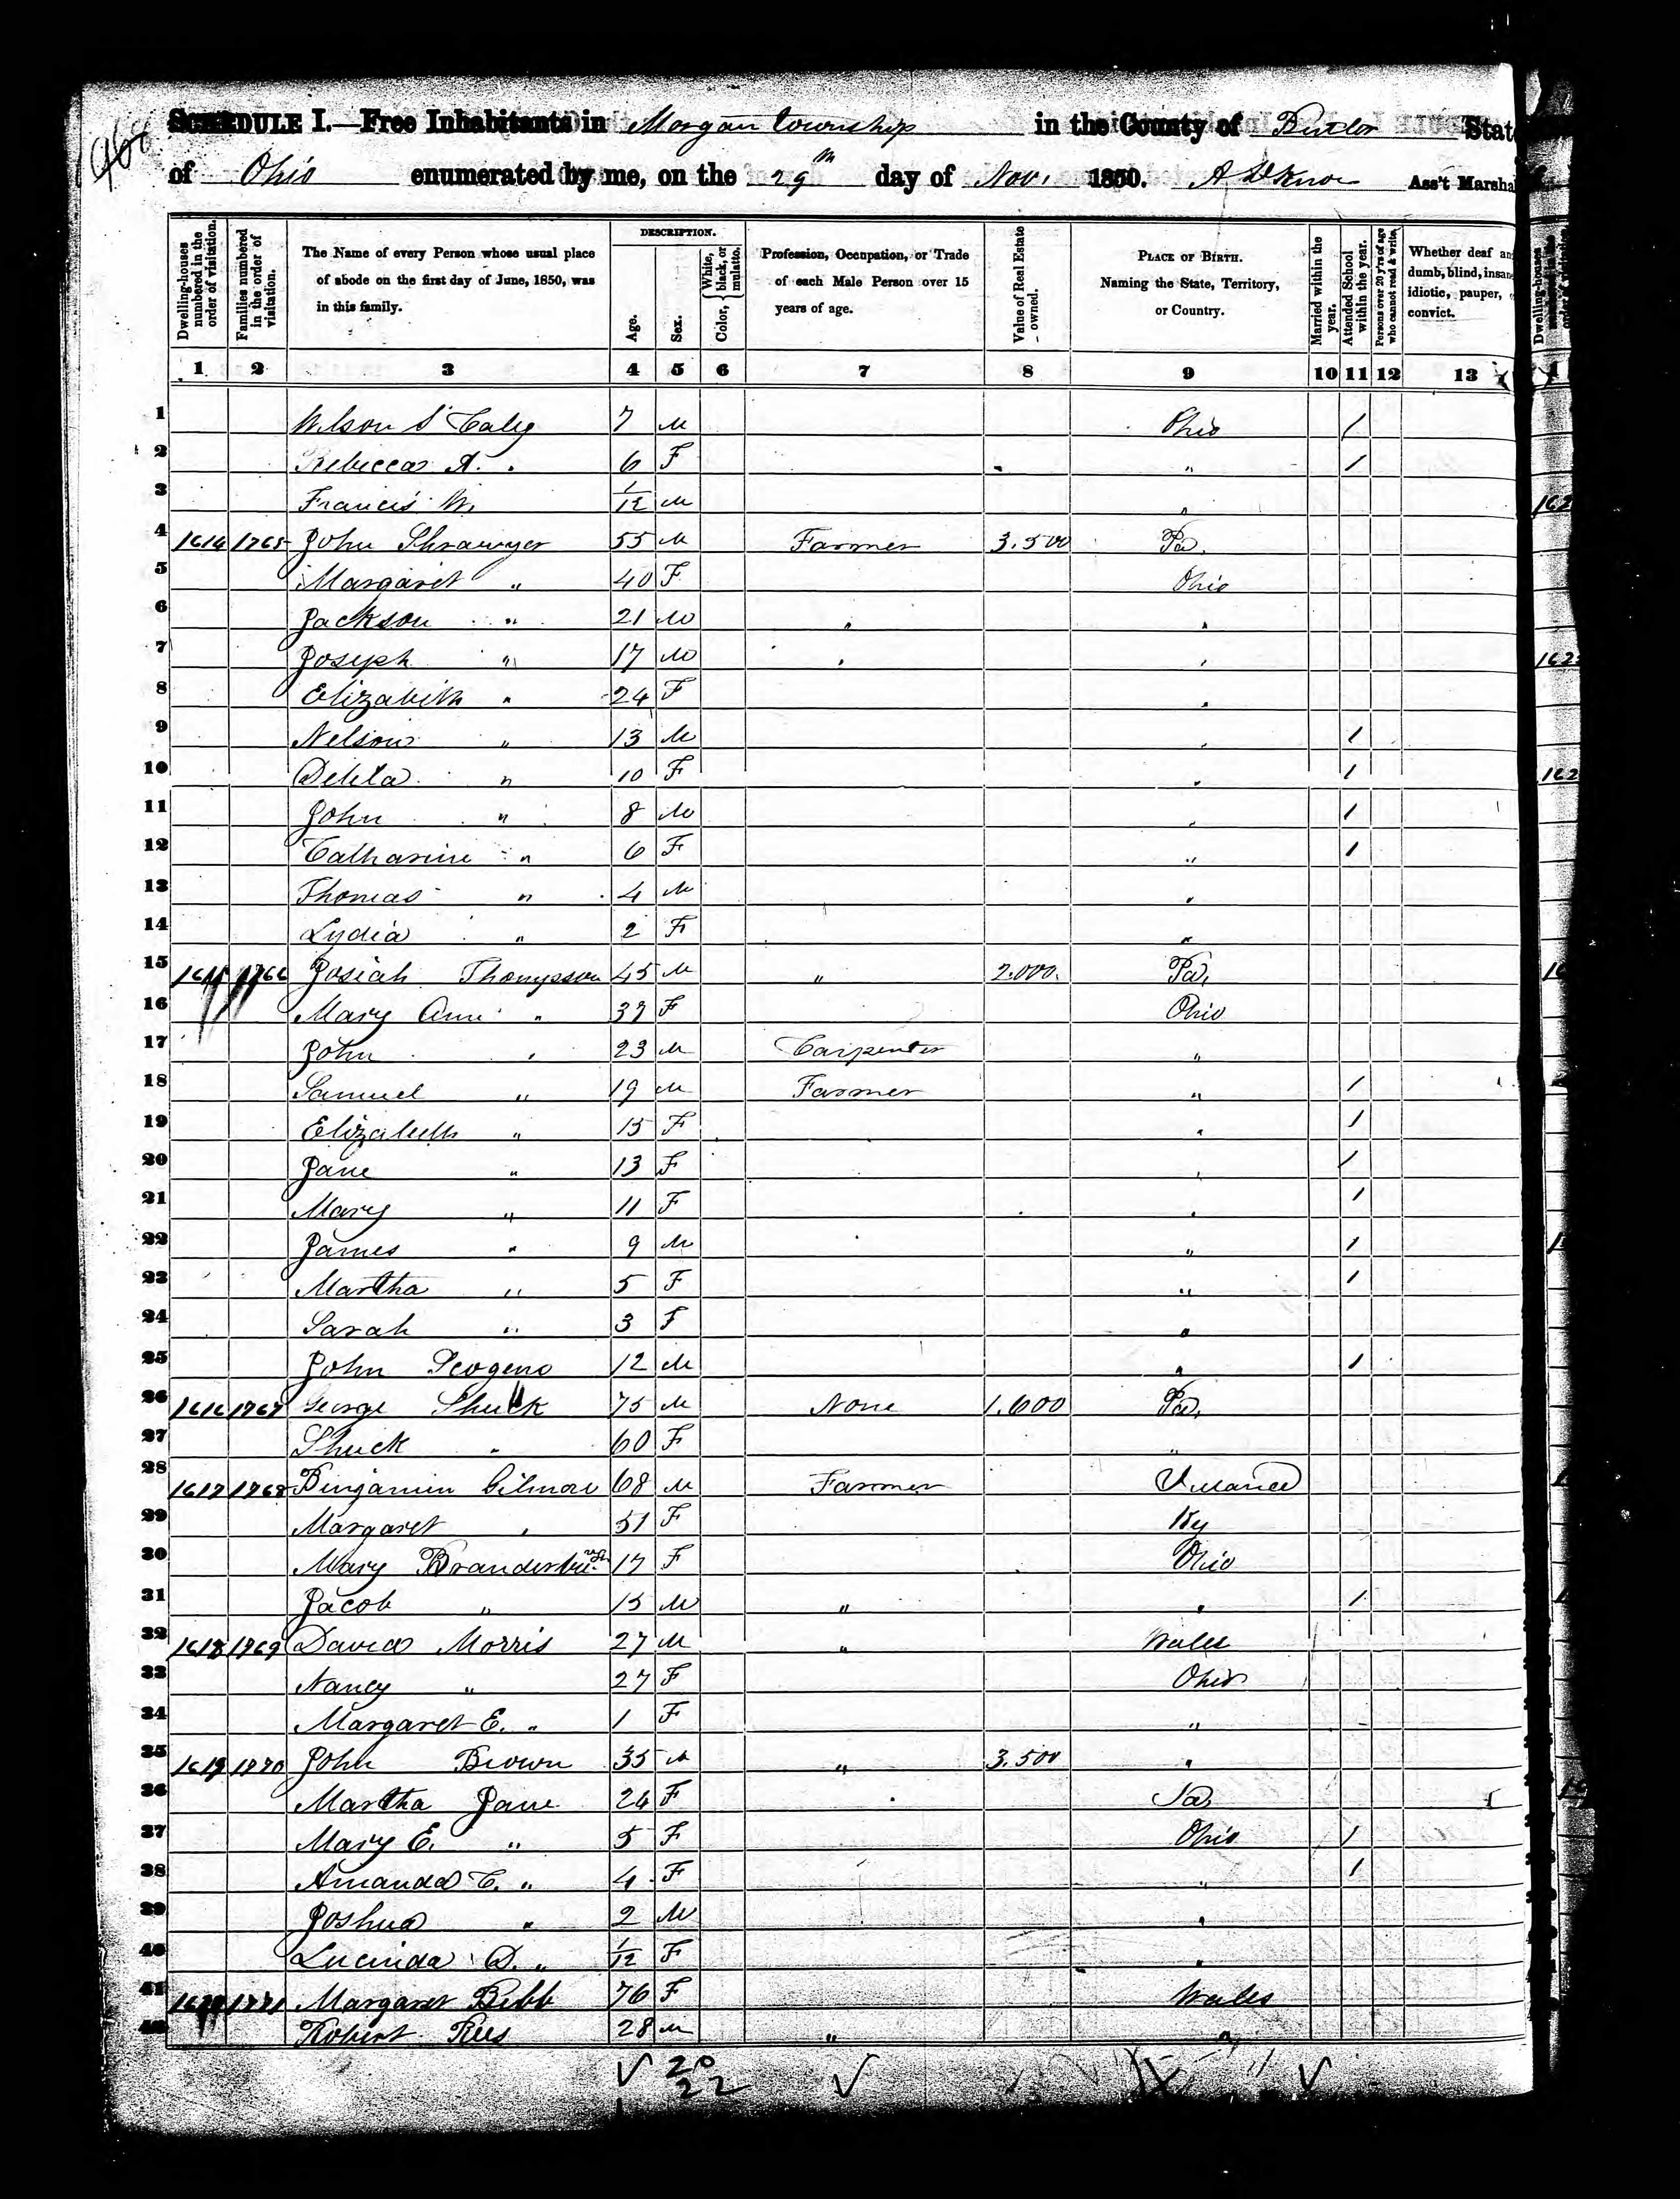 SCHEDULE I.—Free Inhabitants in Morgan Township in the County of Butler State
of Ohio enumerated by me, on the 29th day of Nov. 1850. Ass't Marshal
Dwelling-houses numbered in the order of visitation. Families numbered in the order of visitation. The Name of every Person whose usual place of abode on the first day of June, 1850, was in this family. DESCRIPTION. Age. Sex. Color, { White, black, or mulatto. Profession, Occupation, or Trade of each Male Person over 15 years of age. Value of Real Estate owned. PLACE OF BIRTH. Naming the State, Territory, or Country. Married within the year. Attended School within the year. Persons over 20 y'rs of age who cannot read & write. Whether deaf and dumb, blind, insane, idiotic, pauper, convict.
1 2 3 4 5 6 7 8 9 10 11 12 13
1 Wilson S 7 M Ohio /
2 Rebecca A. " 6 F " /
3 Francis W. 1/12 M "
4 1614 1765 John Shrawyer 55 M Farmer 3.500 Pa.
5 Margaret " 40 F Ohio
6 Jackson " 21 M " "
7 Joseph " 17 M " "
8 Elizabeth " 24 F "
9 Nelson " 13 M " /
10 " 10 F " /
11 John " 8 M " /
12 Catharine " 6 F " /
13 Thomas " 4 M "
14 Lydia " 2 F "
15 1615 1766 Josiah Thompson 45 M " 2.000. Pa.
16 Mary Ann " 37 F Ohio
17 John " 23 M Carpenter "
18 Samuel " 19 M Farmer " /
19 Elizabeth " 15 F " /
20 Jane " 13 F " /
21 Mary " 11 F " /
22 James " 9 M " /
23 Martha " 5 F " /
24 Sarah " 3 F "
25 John 12 M " /
26 1616 1767 George Shuck 75 M None 1.600 Pa.
27 Shuck " 60 F "
28 1617 1768 Benjamin Gilmore 68 M Farmer
29 Margaret " 51 F Ky
30 Mary Brandenburgh 17 F Ohio
31 Jacob " 15 M " " /
32 1618 1769 David Morris 27 M " Wales
33 Nancy " 27 F Ohio
34 Margaret E. " 1 F "
35 1619 1770 John Brown 35 M " 3.500 "
36 Martha Jane 24 F Pa.
37 Mary E. " 5 F Ohio /
38 Amanda C. " 4 F " /
39 Joshua " 2 M "
40 Lucinda D. " 1/12 F "
41 1620 1771 Margaret Bebb 76 F Wales
42 Robert Rees 28 M " "
20
22